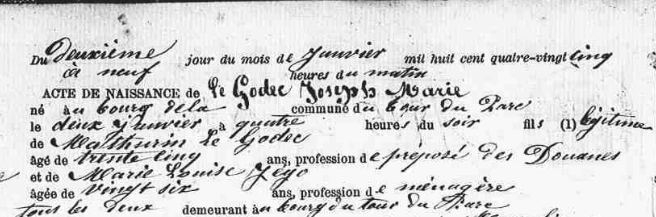 Du deuxième jour du mois de Janvier mil huit cent quatre-vingt cinq
à neuf heures du matin
ACTE DE NAISSANCE de Le Godec Joseph Marie
né au bourg de la commune du tour du Parc
le deux Janvier à quatre heures du soir fils (1) légitime
de Mathurin Le Godec
âgé de trente cinq ans, profession de préposé des Douanes
et de Marie Louise Jégo
âgée de vingt six ans, profession de ménagère
tous les deux demeurant au bourg du tour du Parc